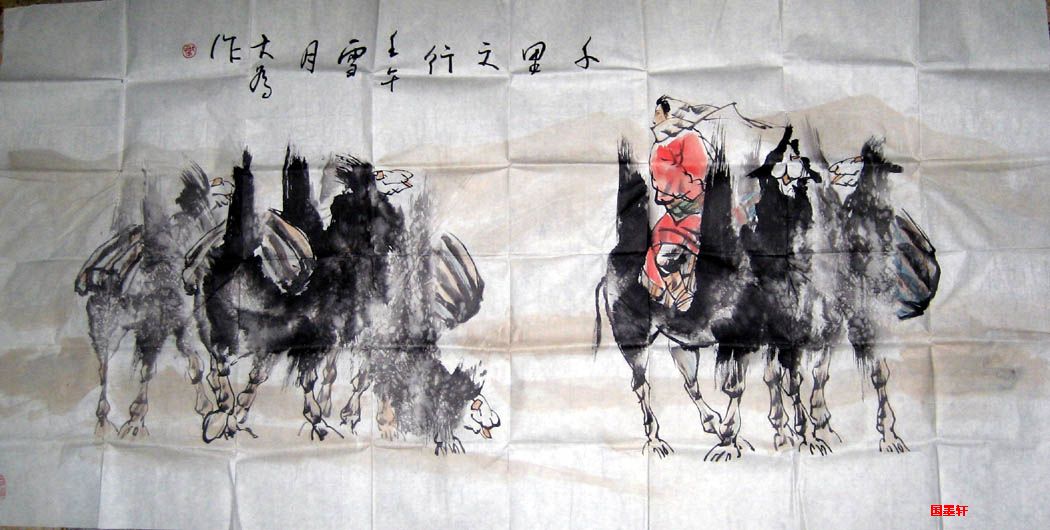 千里之行壬午雪月大为作
国墨轩